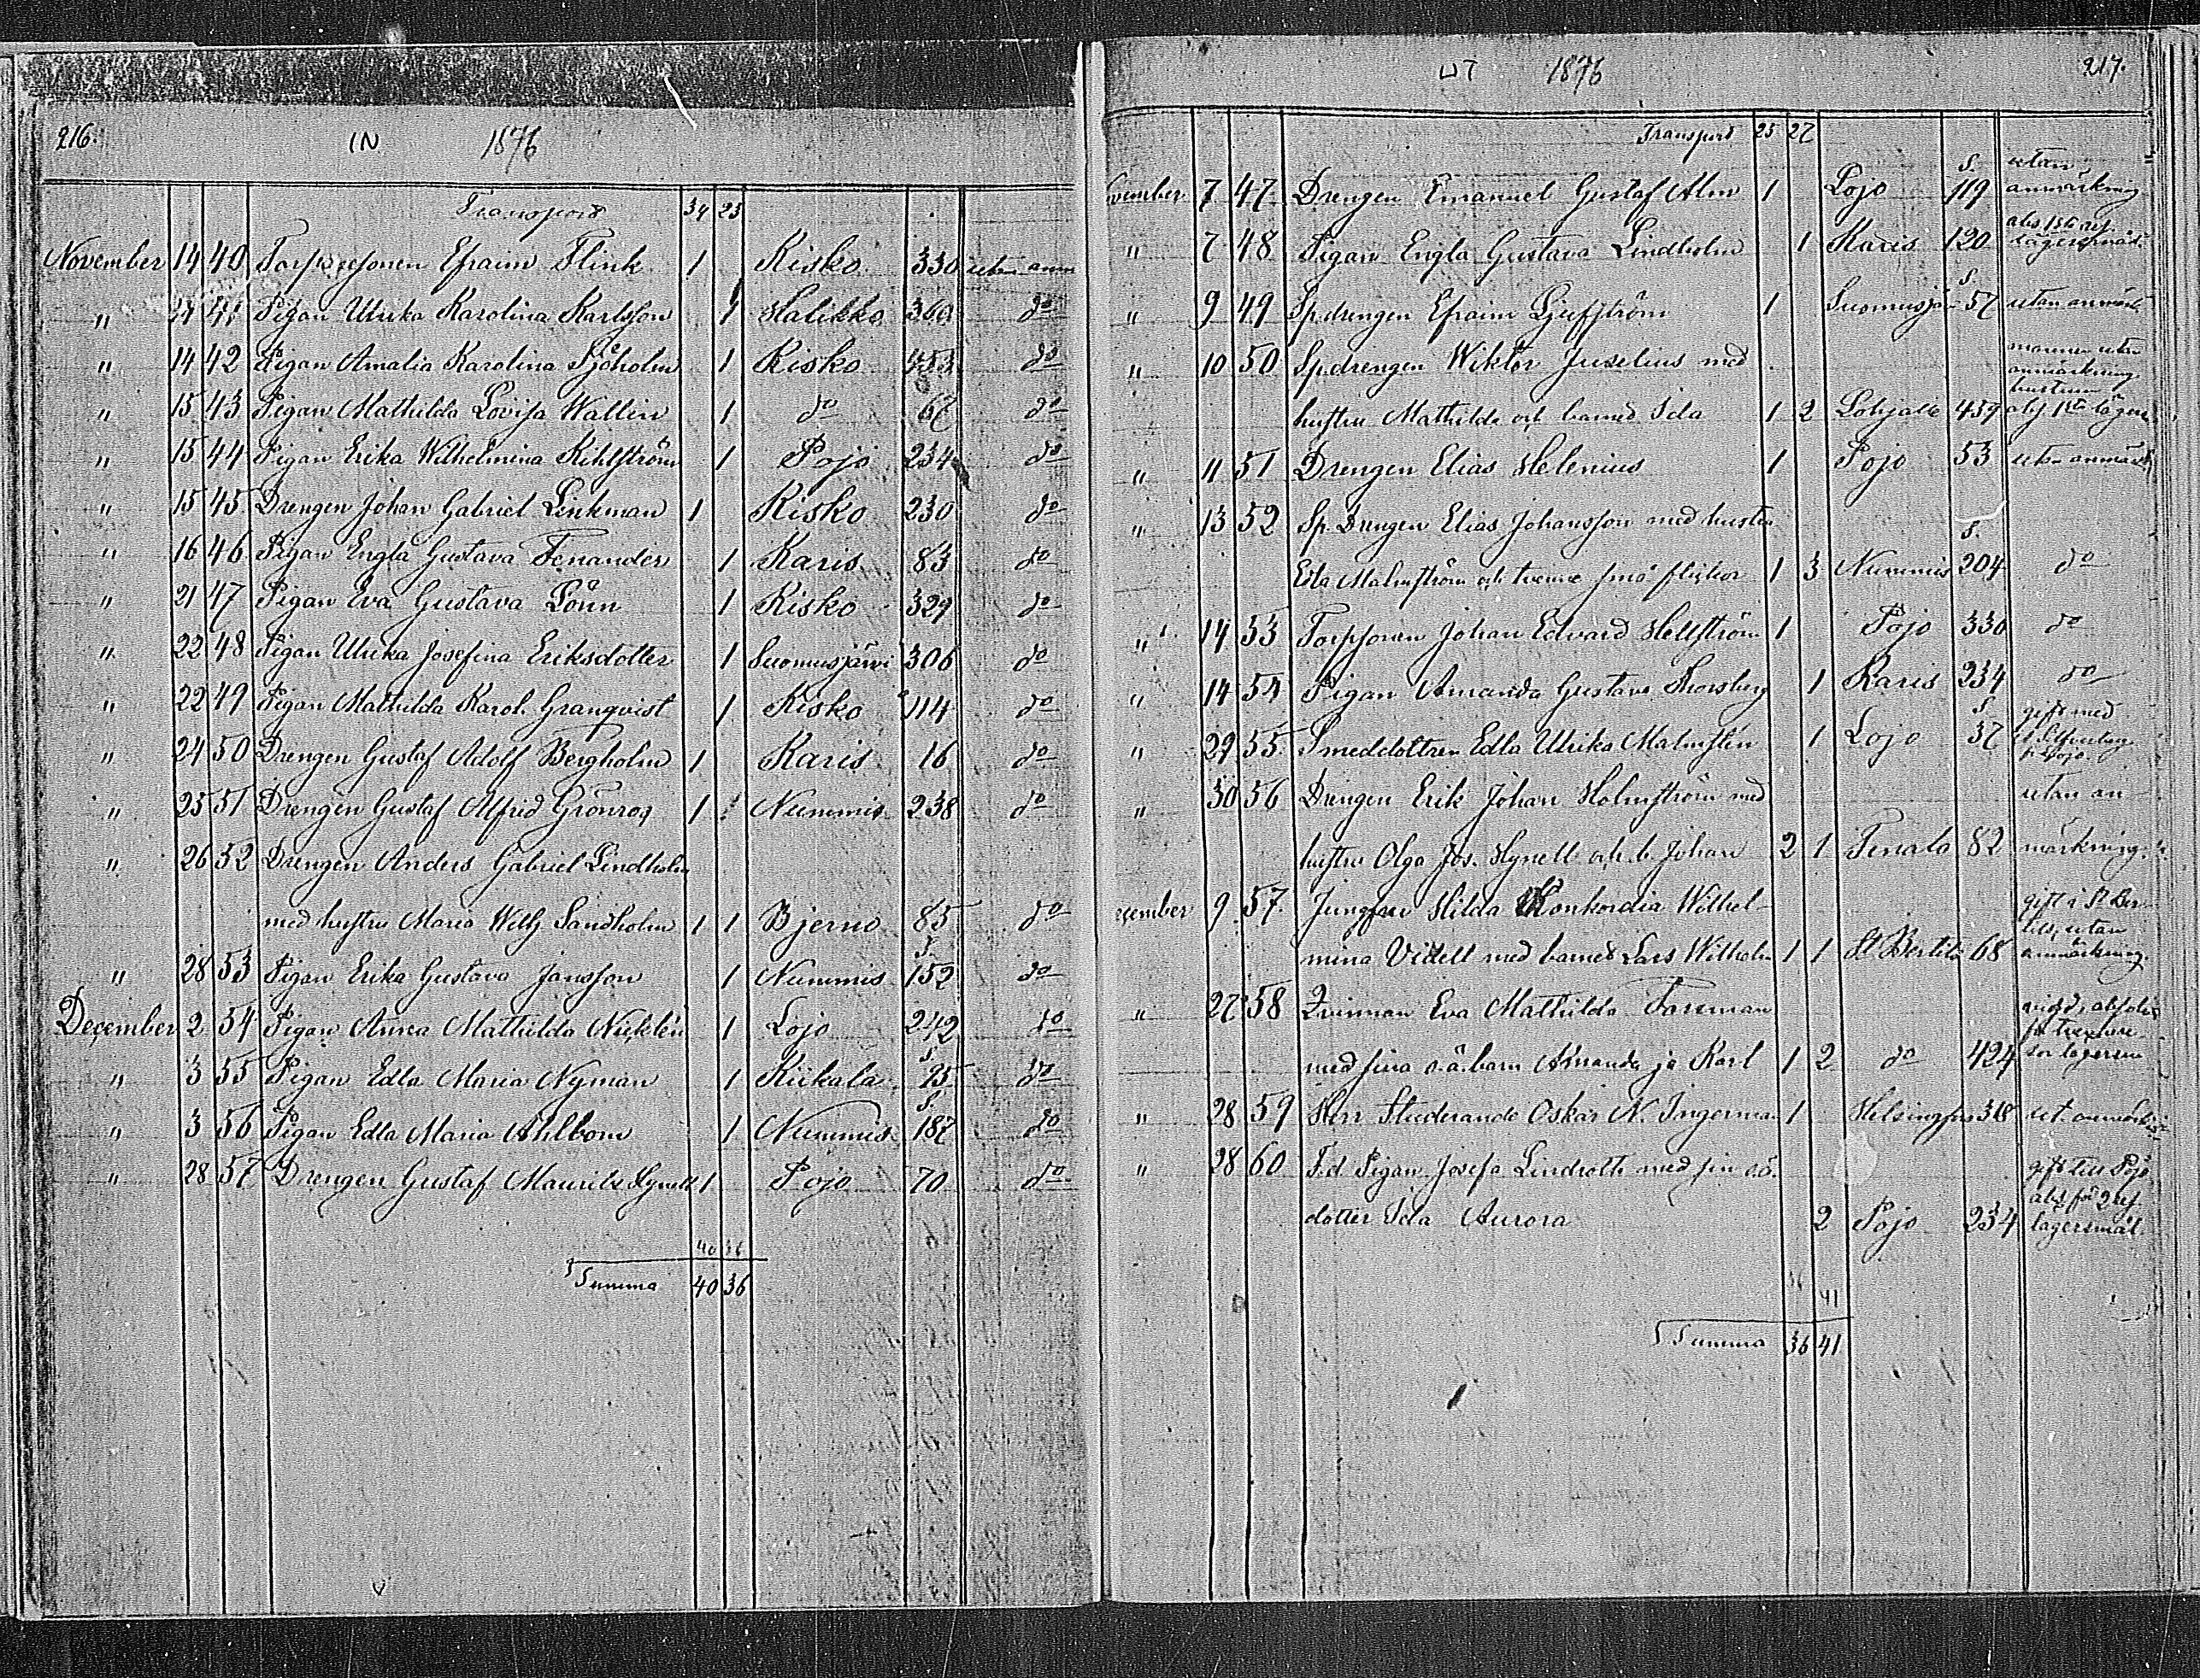 216. IN 1876
Transport 34 23
November 14 40 Torpsonen Efraim Flink 1 Kisko 330 utan anm
" 14 41 Pigan Ulrika Karolina Karlsson 1 Halikko 360 do
" 14 42 Pigan Amalia Karolina Sjöholm 1 Kisko 453 do
" 15 43 Pigan Mathilda Lovisa Wallin 1 do 67 do
" 15 44 Pigan Erika Wilhelmina Kihlström 1 Pojo 234 do
" 15 45 Drengen Johan Gabriel Linkman 1 Kisko 230 do
" 16 46 Pigan Engla Gustava Fenander 1 Karis 83 do
" 21 47 Pigan Eva Gustava Lönn 1 Kisko 329 do
" 22 48 Pigan Ulrika Josefina Eriksdotter 1 Suomusjärvi 306 do
" 22 49 Pigan Mathilda Karol. Granqvist 1 Kisko 114 do
" 24 50 Drengen Gustaf Adolf Bergholm 1 Karis 16 do
" 25 51 Drengen Gustaf Alfrid Grönros 1 Nummis 238 do
" 26 52 Drengen Anders Gabriel Lindholm
med hustru Maria Wilh. Sandholm 1 1 Bjerno 85 do
" 28 53 Pigan Erika Gustava Jansson 1 Nummis S. 152 do
December 2 54 Pigan Anna Mathilda Nicklén 1 Lojo 242 do
" 3 55 Pigan Edla Maria Nyman 1 Kiikala S. 25 do
" 3 56 Pigan Edla Maria Ahlbom 1 Nummis S. 187 do
" 28 57 Drengen Gustaf Maurits Hynell 1 Pojo 70 do
40 36
Summa 40 36
UT 1876 217.
Transport 25 27
vember 7 47 Drengen Emanuel Gustaf Alm 1 Lojo S. 119 utan anmärkning
" 7 48 Pigan Engla Gustava Lindholm 1 Karis 120 abs. 1sta res. lägersmål
" 9 49 Sp.drengen Efraim Ljufström 1 Suomusjär S. 57 utan anmärk
" 10 50 Sp.drengen Wiktor Juselius med mannen utan anmärkning
hustru Mathilda och barned Ida 1 2 Lohjale 459 hustrun abs 1sta läger
" 11 51 Drengen Elias Helenius 1 Pojo 53 utan anmärk
" 13 52 Sp. Drengen Elias Johansson med hustru
Eda Malmström och tvenne små flickor 1 3 Nummis S. 204 do
" 14 53 Torpsonen Johan Edvard Hellström 1 Pojo 330 do
" 14 54 Pigan Amanda Gustava Thorsberg 1 Karis 234 do
" 29 55 Smeddottren Edla Ulrika Malmstén 1 Lojo S. 37 gift med
" 30 56 Drengen Erik Johan Holmström med utan an-
hustru Olga Jos. Hynell och b. Johan 2 1 Tenala 82 märkning.
ecember 9 57. Jungfru Hilda Konkordia Wilhel- gift i St Ber-
mina Videll med barned Lars Wilhelm 1 1 St Bertils 68 tils, utan anmärkning.
" 27 58 Qvinnan Eva Mathilda Forsman
med sina o.ä. barn Amanda ja Karl 1 2 do 424 lägersm
" 28 59 Herr Studerande Oskar N. Ingerma 1 Helsingfors 318 ut. anmärk
" 28 60 F.d. Pigan Josefa Lindroth med sin o.ä. gift till Pojo
dotter Ida Aurora 2 Pojo 234 abs. för 2 res lägersmål
41
Summa 36 41